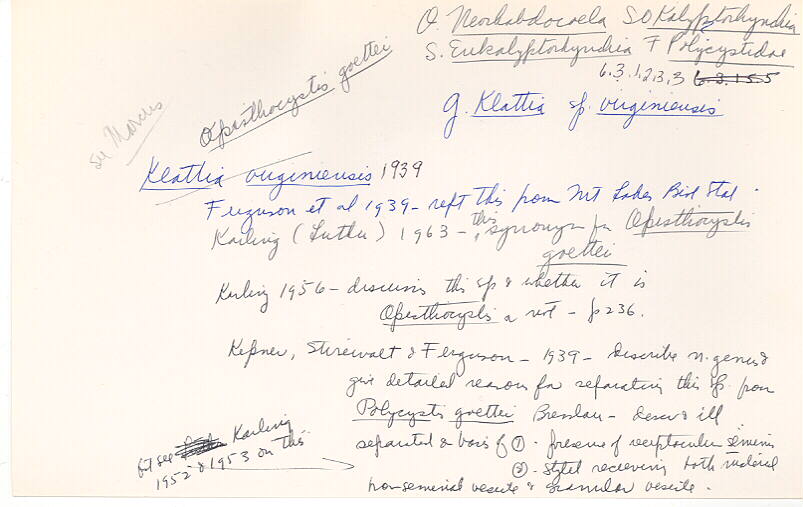 O. Neorhabdocoela SO Kalyptorhynchia
S. Eukalyptorhynchia F Polycystidae
6.3.1.2.13.3 6.3.15.5
G. Klattia sp. virginiensis
Opisthocystis goettei
see
Klattia virginiensis 1939
Ferguson et al 1939 - rept this from Mt Lakes Biol Stat.
Karling (Luther) 1963 - this synonym for Opisthocystis
goettei
Karling 1956 - discusses this sp & whether it is
Opisthocystis or not - p 236.
Kepner, Stirewalt & Ferguson - 1939 - Describe n. genus &
give detailed reasons for separating this sp. from
Polycystis goettei Bresslau - descr & ill
separated on basis of ① - presence of receptaculum seminis
② - stylet receiving both material
from seminal vesicle & granular vesicle.
but see Karling
1952 & 1953 on this